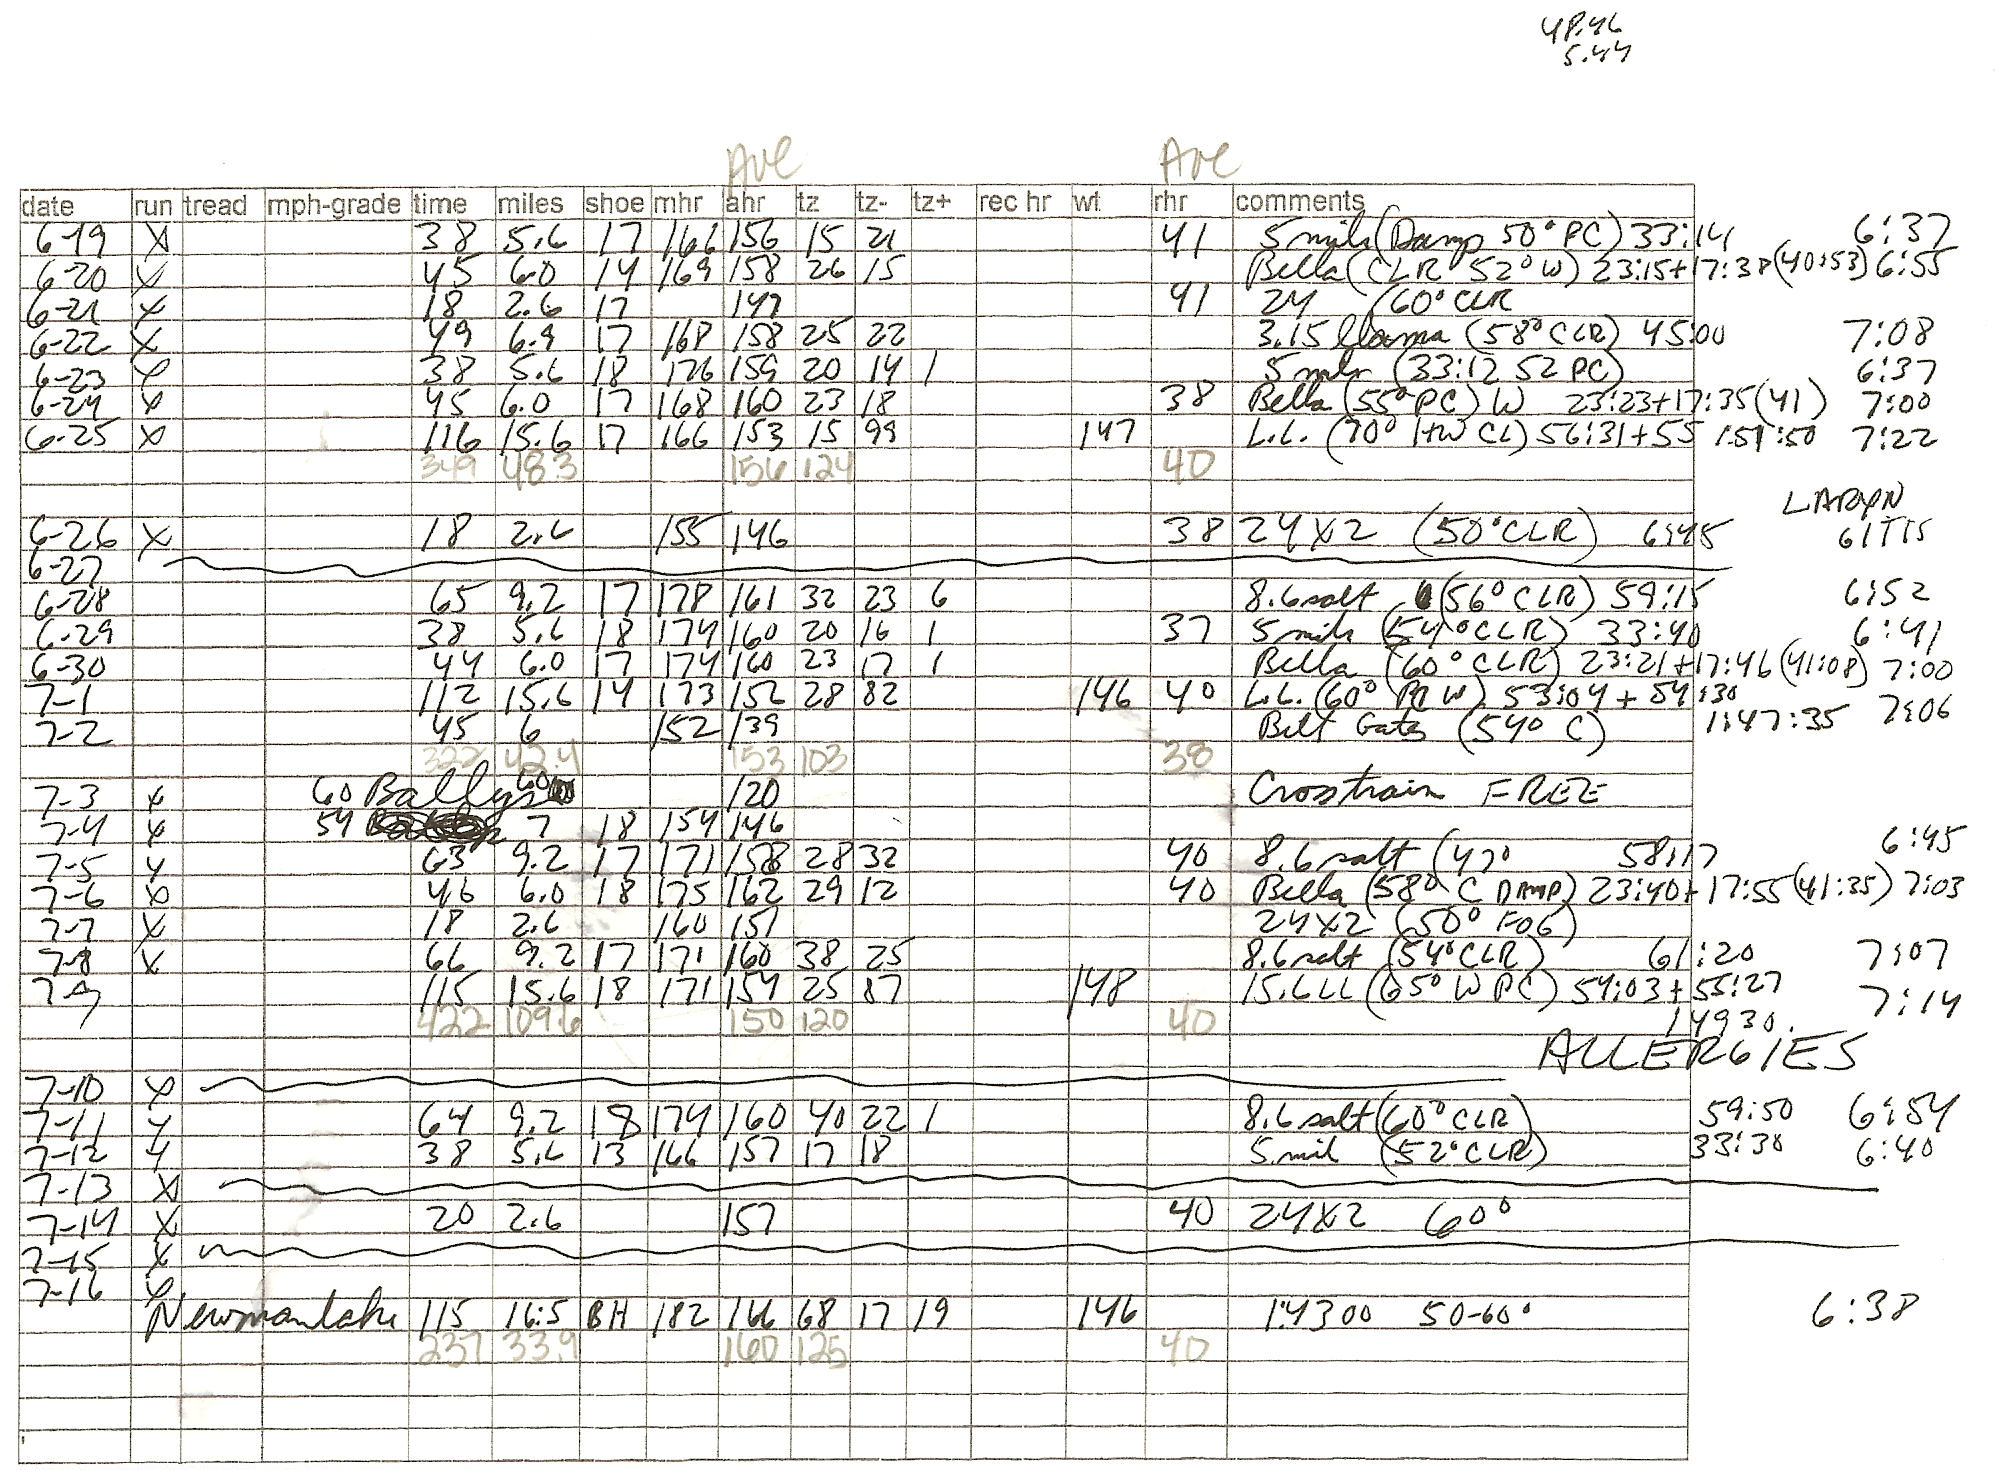 48.46
5.44
Ave Ave
date run tread mph-grade time miles shoe mhr ahr tz tz- tz+ rec hr wt rhr comments
6-19 X 38 5.6 17 166 156 15 21 41 5 mile (Damp 50° PC) 33:14 6:37
6-20 X 45 6.0 14 169 158 26 15 Bella (CLR 52° W) 23:15+17:38 (40:53) 6:55
6-21 X 18 2.6 17 147 41 24 (60° CLR
6-22 X 49 6.9 17 168 158 25 22 3.15 llama (58° CLR) 45:00 7:08
6-23 X 38 5.6 18 176 159 20 14 1 5 mile (33:12 52 PC) 6:37
6-24 X 45 6.0 17 168 160 23 18 38 Bella (55° PC) W 23:23+17:35 (41) 7:00
6-25 X 116 15.6 17 166 153 15 99 147 L.L. (70° HW CL) 56:31+55 1:51:50 7:22
349 48.3 156 124 40
LARYN
6-26 X 18 2.6 155 146 38 24X2 (50° CLR) 6:45 GITIS
6-27
6-28 65 9.2 17 178 161 32 23 6 8.6 salt (56° CLR) 59:15 6:52
6-29 38 5.6 18 174 160 20 16 1 37 5 mile (54° CLR) 33:40 6:41
6-30 44 6.0 17 174 160 23 17 1 Bella (60° CLR) 23:21+17:46 (41:08) 7:00
7-1 112 15.6 14 173 152 28 82 146 40 L.L. (60° PC W) 53:04 + 54:30
7-2 45 6 152 139 Belt Gates (54° C) 1:47:35 7:06
322 42.4 153 103 38
7-3 X 60 Ballys 60 120 Crosstrain FREE
7-4 X 54 7 18 154 146
7-5 X 63 9.2 17 171 158 28 32 40 8.6 salt (47° 58:17 6:45
7-6 X 46 6.0 18 175 162 29 12 40 Bella (58° C DAMP) 23:40+17:55 (41:35) 7:03
7-7 X 18 2.6 160 151 24X2 (50° FOG)
7-8 X 66 9.2 17 171 160 38 25 8.6 salt (54° CLR) 61:20 7:07
7-9 115 15.6 18 171 154 25 87 148 15.6 LL (65° W PC) 54:03 + 55:27
422 109.6 150 120 40 14930. 7:14
ALLERGIES
7-10 X
7-11 X 64 9.2 18 174 160 40 22 1 8.6 salt (60° CLR) 59:50 6:54
7-12 X 38 5.6 13 166 157 17 18 5 mil (52° CLR) 33:30 6:40
7-13 X
7-14 X 20 2.6 157 40 24X2 60°
7-15 X
7-16 X
Newmanlake 115 16:5 BH 182 166 68 17 19 146 1:43 00 50-60° 6:38
237 33.9 160 125 40